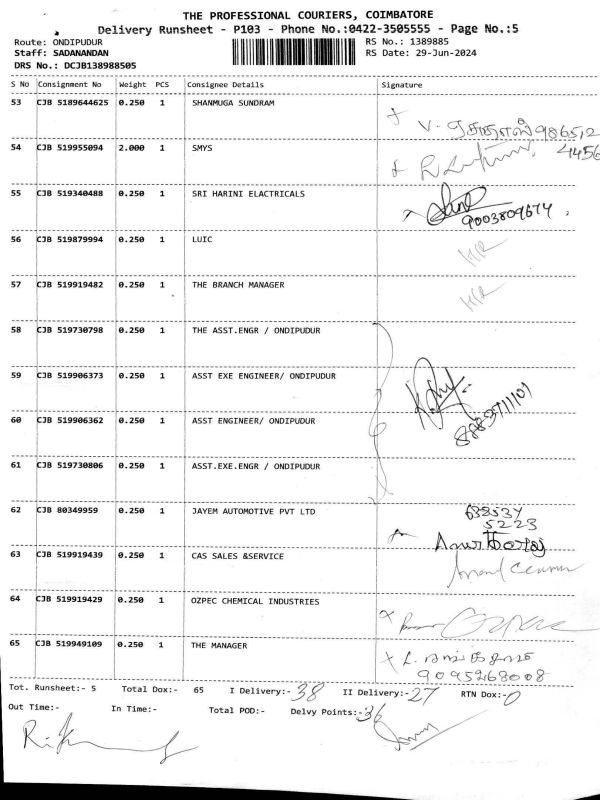 THE PROFESSIONAL COURIERS, COIMBATORE
Delivery Runsheet - P103 - Phone No.:0422-3505555 - Page No.:5
Route: ONDIPUDUR RS No.: 1389885
Staff: SADANANDAN RS Date: 29-Jun-2024
DRS No.: DCJB138988505
S No Consignment No Weight PCS Consignee Details Signature
53 CJB 5189644625 0.250 1 SHANMUGA SUNDRAM
V. 98651,2
54 CJB 519955094 2.000 1 SMYS 4456
55 CJB 519340488 0.250 1 SRI HARINI ELACTRICALS
9003809674
56 CJB 519879994 0.250 1 LUIC
57 CJB 519919482 0.250 1 THE BRANCH MANAGER
58 CJB 519730798 0.250 1 THE ASST.ENGR / ONDIPUDUR
59 CJB 519906373 0.250 1 ASST EXE ENGINEER/ ONDIPUDUR
60 CJB 519906362 0.250 1 ASST ENGINEER/ ONDIPUDUR
61 CJB 519730806 0.250 1 ASST.EXE.ENGR / ONDIPUDUR
62 CJB 80349959 0.250 1 JAYEM AUTOMOTIVE PVT LTD
5223
63 CJB 519919439 0.250 1 CAS SALES &SERVICE
64 CJB 519919429 0.250 1 OZPEC CHEMICAL INDUSTRIES
65 CJB 519949109 0.250 1 THE MANAGER
9095268008
Tot. Runsheet:- 5 Total Dox:- 65 I Delivery:- 38 II Delivery:- 27 RTN Dox:- 0
Out Time:- In Time:- Total POD:- Delvy Points:- 36